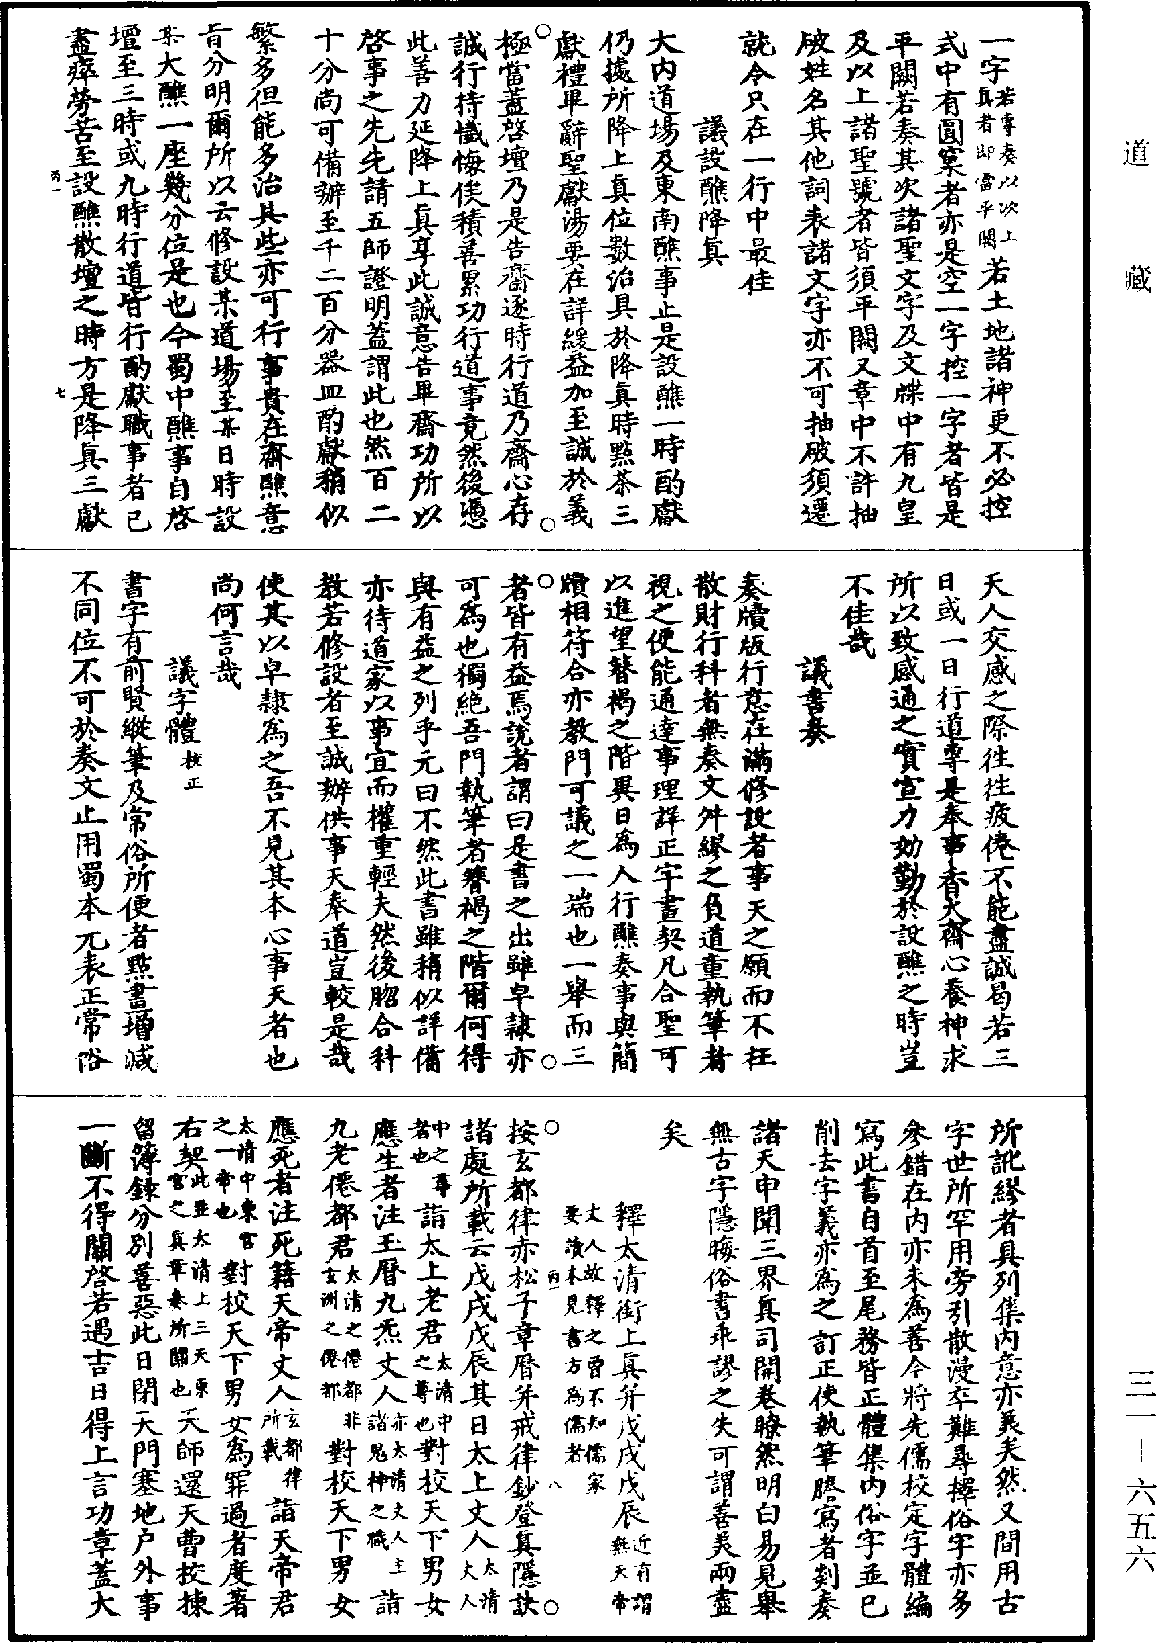 道藏
一字若專奏以次上真者即當平闕若土地諸神更不必控
式中有圓窠者亦是空一字控一字者皆是
平闕若奏其次諸聖文字及文牒中有九皇
及以上諸聖號者皆須平闕又章中不許抽
破姓名其他詞表諸文字亦不可抽破須遷
就令只在一行中最佳
議設醮降真
大內道場及東南醮事止是設醮一時酌獻
仍據所降上真位數治具於降真時點茶三
獻禮畢辭聖獻湯要在詳緩益加至誠於義
極當蓋啓壇乃是告齋逐時行道乃齋心存
誠行持懺悔俟積善累功行道事竟然後憑
此善力延降上真享此誠意告畢齋功所以
啓事之先先請五師證明蓋謂此也然百二
十分尚可備辦至千二百分器皿酌獻稍似
繁多但能多治其些亦可行事貴在齊醮意
旨分明爾所以云修設某道場至某日時設
某大醮一座幾分位是也今蜀中醮事自啓
壇至三時或九時行道皆行酌獻職事者已
盡瘁勞苦至設醮散壇之時方是降真三獻
丙一
七
天人交感之際往往疲倦不能盡誠曷若三
日或一日行道專是奉事香火齋心養神求
所以致感通之實宣力効勤於設醮之時豈
不佳哉
議書奏
奏牘版行意在滿修設者事天之願而不枉
散財行科者無奏文舛繆之負道童執筆者
視之便能通達事理詳正字畫契凡合聖可
以進望替褐之階異日為人行醮奏事與簡
牘相符合亦教門可議之一端也一舉而三
者皆有益焉說者謂曰是書之出雖皁隷亦
可為也獨絶吾門執筆者簪褐之階爾何得
與有益之列乎元曰不然此書雖稍似詳備
亦待道家以事宜而權重輕夫然後脗合科
教若修設者至誠辦供事天奉道豈較是哉
使其以皁隷為之吾不見其本心事天者也
尚何言哉
議字體校正
書字有前賢縱筆及常俗所便者點畫增減
不同位不可於奏文止用蜀本兀表正常俗
所訛繆者具列集內意亦美矣然又間用古
字世所罕用旁引散漫卒難尋擇俗字亦多
參錯在內亦未為善今將先儒校定字體編
寫此書自首至尾務皆正體集內俗字並已
削去字義亦為之訂正使執筆謄寫者剡奏
諸天申聞三界真司開卷瞭然明白易見舉
無古字隱晦俗書乖謬之失可謂善美兩盡
矣
釋太清銜上真并戊戌戊辰近有謂無天帝
丈人故釋之曾不知儒家
要讀未見書方為儒者
丙一
八
按玄都律赤松子章曆并戒律鈔登真隱訣
諸處所載云戊戌戊辰其日太上丈人太清丈人
中之尊者也詣太上老君太清中之尊也對校天下男女
應生者注玉曆九炁丈人亦太清丈人主諸鬼神之職詣
九老僊都君太清之僊都非玄洲之僊都對校天下男女
應死者注死籍天帝丈人玄都律所載詣天帝君
太清中東宮之一帝也對校天下男女為罪過者度著
右契此並太清上三天東宮之真章奏所關也天師還天曹校揀
留簿録分別善惡此日閉天門塞地户外事
一斷不得關啓若遇吉日得上言功章蓋大
三一－六五六